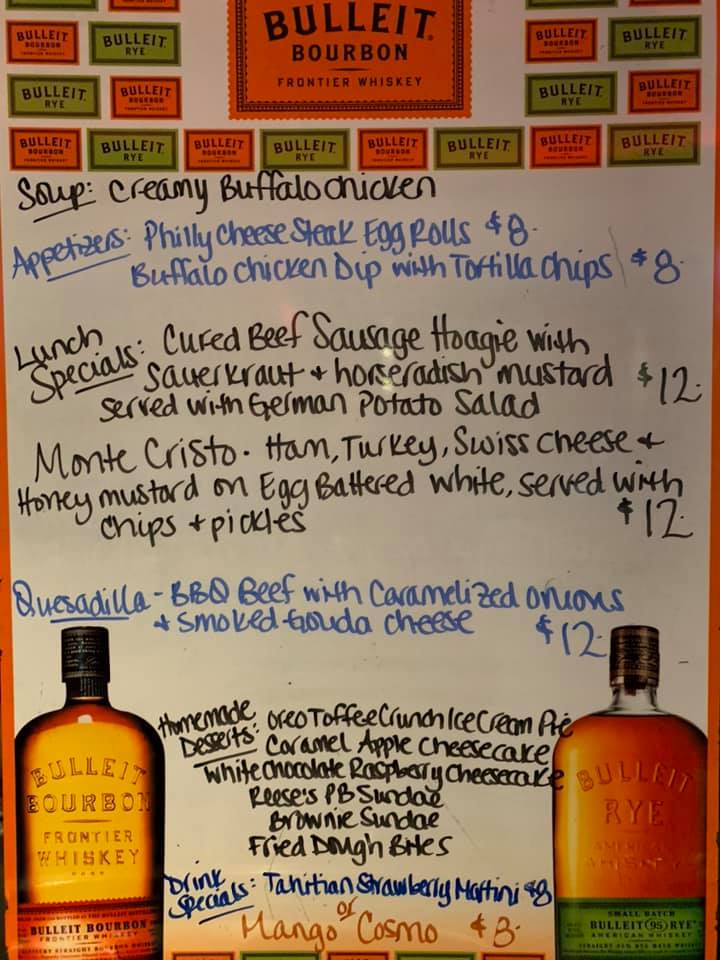 BULLEIT
BOURBON
FRONTIER WHISKEY
BULLEIT BOURBON
BULLEIT RYE
BULLEIT BOURBON
BULLEIT RYE
BULLEIT RYE
BULLEIT BOURBON
BULLEIT RYE
BULLEIT BOURBON
BULLEIT BOURBON
BULLEIT RYE
BULLEIT BOURBON
BULLEIT RYE
BULLEIT BOURBON
BULLEIT RYE
BULLEIT BOURBON
BULLEIT RYE
Soup: Creamy Buffalo chicken
Appetizers: Philly Cheese Steak Egg Rolls $8.
Buffalo Chicken Dip with Tortilla Chips $8.
Lunch Specials: Cured Beef Sausage Hoagie with
Sauerkraut + horseradish mustard $12.
served with German Potato Salad
Monte Cristo. Ham, Turkey, Swiss cheese +
Honey mustard on Egg Battered white, served with
chips + pickles $12.
Quesadilla - BBQ Beef with Caramelized onions
+ smoked Gouda cheese $12.
Homemade Desserts: Oreo Toffee Crunch Ice Cream Pie
Caramel Apple Cheesecake
White Chocolate Raspberry Cheesecake
Reese's PB Sundae
Brownie Sundae
Fried Dough Bites
Drink Specials: Tahitian Strawberry Martini $8
or
Mango Cosmo $8.
BULLEIT
BOURBON
FRONTIER
WHISKEY
BULLEIT BOURBON
FRONTIER WHISKEY
BULLEIT
RYE
SMALL BATCH
BULLEIT 95 RYE
AMERICAN WHISKEY